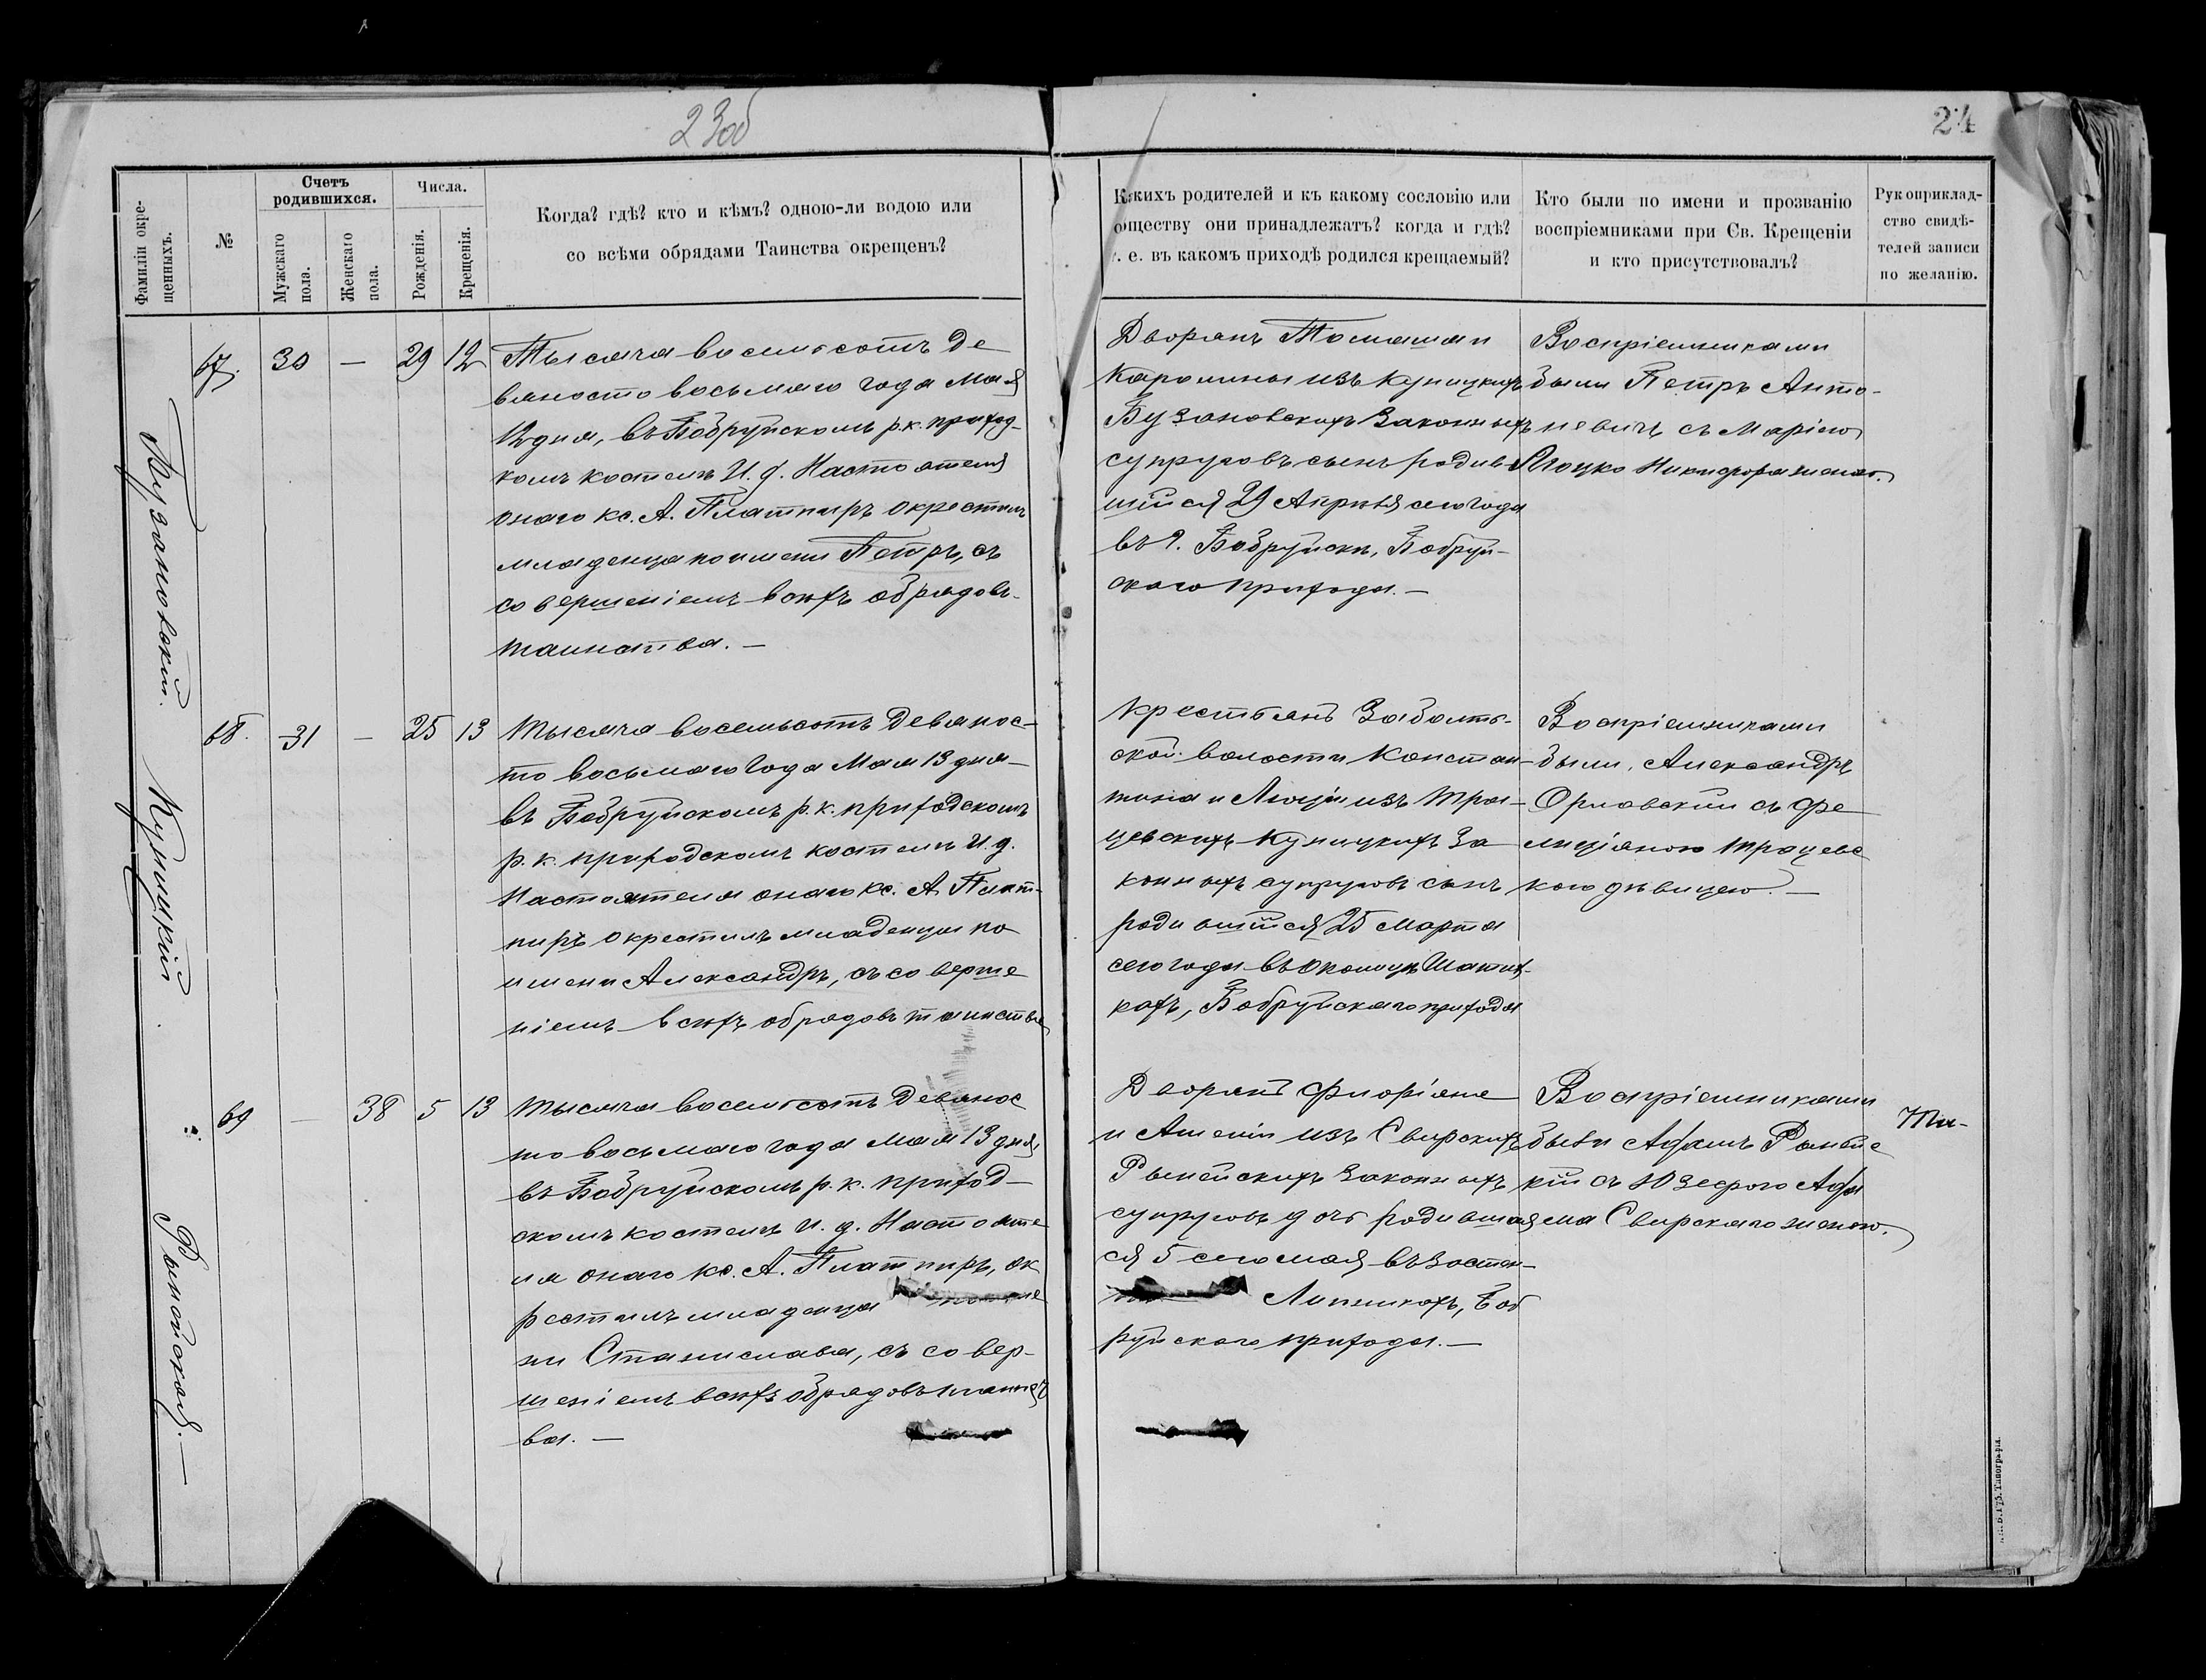 23об
24
Фамиліи окре-
щенныхъ.
№
Счетъ
родившихся.
Мужскаго
пола.
Женскаго
пола.
Числа.
Рожденія.
Крещенія.
Когда? гдѣ? кто и кѣмъ? одною-ли водою или
со всѣми обрядами Таинства окрещенъ?
Какихъ родителей и къ какому сословію или
обществу они принадлежатъ? когда и гдѣ?
т. е. въ какомъ приходѣ родился крещаемый?
Кто были по имени и прозванію
воспріемниками при Св. Крещеніи
и кто присутствовалъ?
Рукоприклад-
ство свидѣ-
телей записи
по желанію.
Бузановскій.
67.
30
—
29
12
Тысяча восемьсотъ де
вяносто восьмаго года Мая
12 дня, въ Бобруйскомъ р. к. приход-
комъ костелѣ И. д. Настоятеля
онаго кс. А. Платпиръ окрестилъ
младенца по имени Петръ, съ
совершеніемъ всѣхъ обрядовъ
таинства. —
Дворянъ Томаша и
Каролины изъ Куницкихъ
Бузановскихъ законныхъ
супруговъ сынъ родив
шійся 29 Апрѣля сего года
въ г. Бобруйскѣ, Бобруй-
скаго прихода. —
Воспріемниками
были Петръ Анто-
невичъ съ Маріею
Никифора женою.
Куницкій
68.
31
—
25
13
Тысяча восемьсотъ девянос-
то восьмаго года Мая 13 дня
въ Бобруйскомъ р. к. приходскомъ
р. к. приходскомъ костелѣ И. д.
Настоятеля онаго кс. А. Плат-
пиръ окрестилъ младенца по
имени Александръ, съ соверше
ніемъ всѣхъ обрядовъ таинства
Крестьянъ
ской волости Констан-
тина и Люціи изъ Тра-
цевскихъ Куницкихъ за
конныхъ супруговъ сынъ
родившійся 25 Марта
сего года въ околицѣ
кахъ, Бобруйскаго прихода
Воспріемниками
были, Александръ
Орловскій съ Фе
лиціяною Трацевс
кою дѣвицею. —
Рымейская. —
69
—
38
5
13
Тысяча восемьсотъ девянос
то восьмаго года Мая 13 дня,
въ Бобруйскомъ р. к. приход-
скомъ костелѣ И. д. Настояте
ля онаго кс. А. Платпиръ, ок
рестилъ младенца по име
ни Станислава, съ совер-
шеніемъ всѣхъ обрядовъ таинст
ва. —
Дворянъ Флоріана
и изъ Свирскихъ
законныхъ
супруговъ дочь родившая
ся 5 сего мая въ застѣн-
Липникахъ, Боб
руйскаго прихода. —
Воспріемниками
были Адамъ
кій съ Юзефою Ада
ма Свирскаго женою.